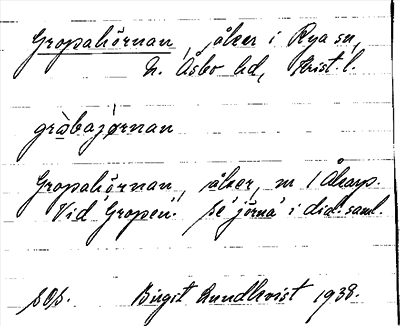 Gropahörnan, åker i Rya sn,
N. Åsbo hd, Krist. l.
gròbajørnan
Gropahörnan, åker, m / Åkarp.
Vid 'Gropen'. Se 'jörna' i dial. saml.
Birgit Rundkvist 1938.